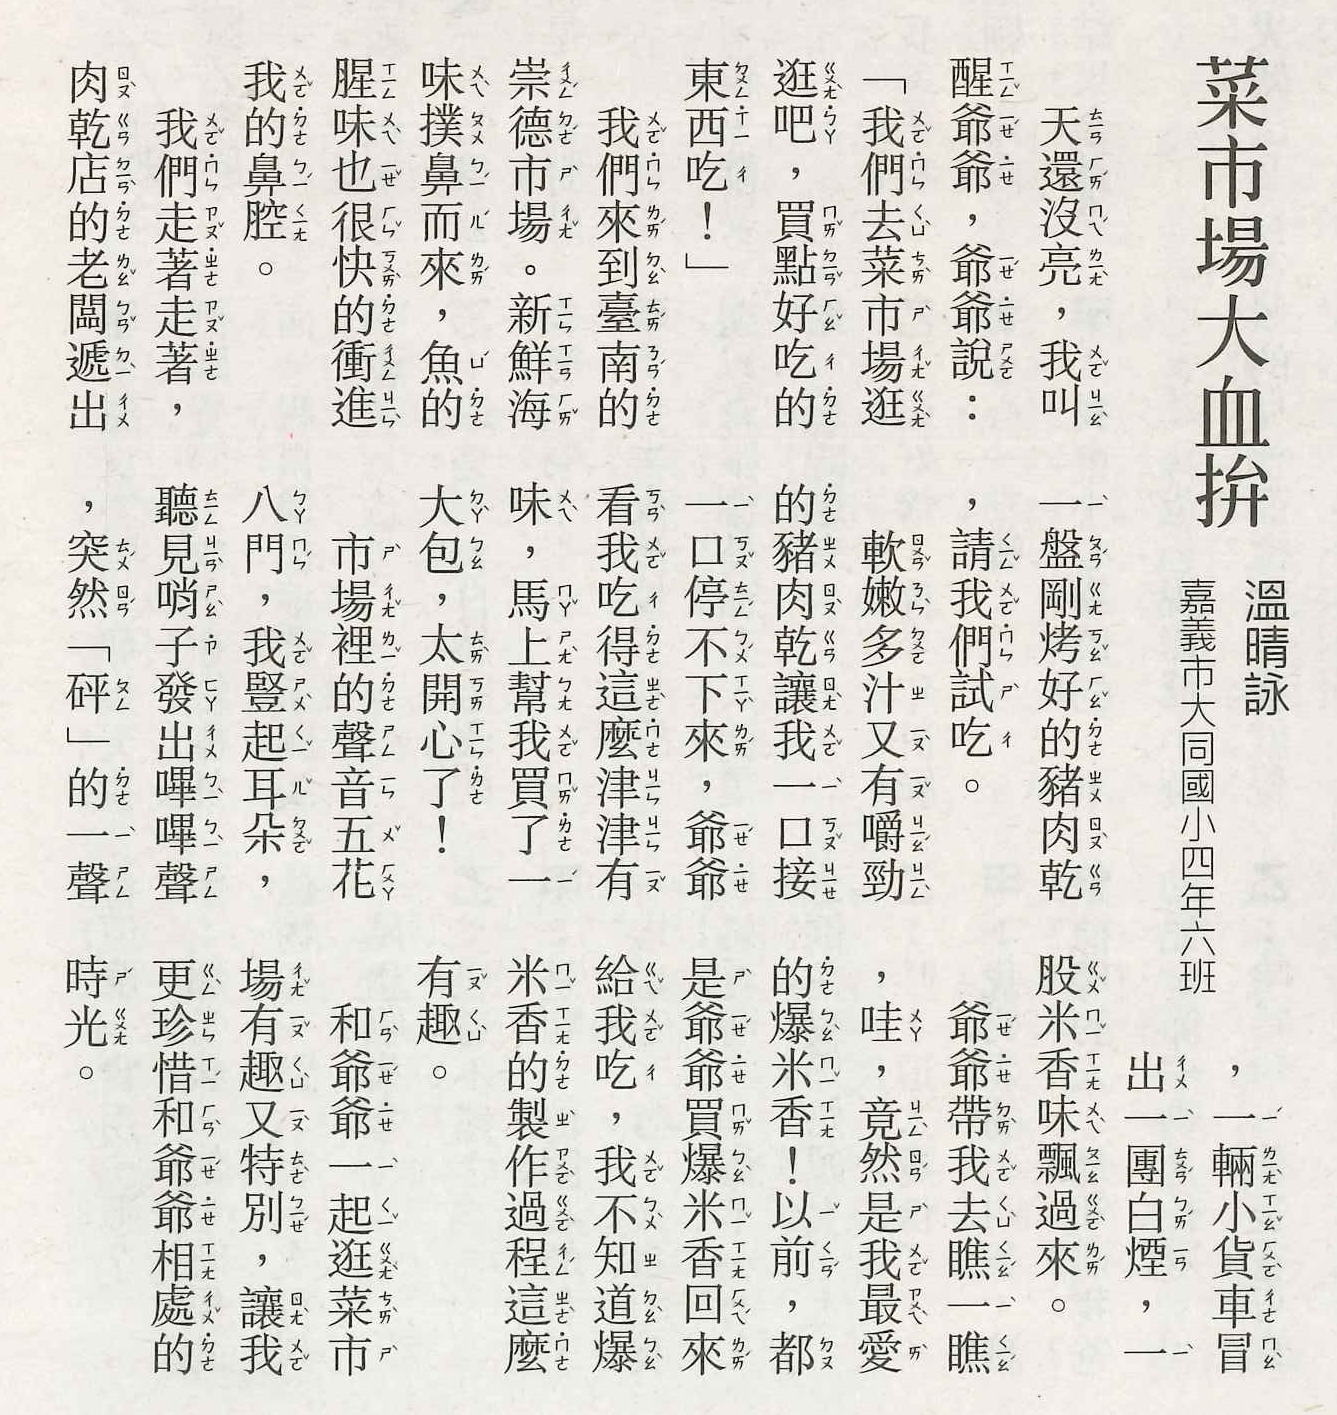 菜市場大血拚
溫晴詠
嘉義市大同國小四年六班
天還沒亮，我叫
醒爺爺，爺爺說：
「我們去菜市場逛
逛吧，買點好吃的
東西吃！」
我們來到臺南的
崇德市場。新鮮海
味撲鼻而來，魚的
腥味也很快的衝進
我的鼻腔。
我們走著走著，
肉乾店的老闆遞出
一盤剛烤好的豬肉乾
，請我們試吃。
軟嫩多汁又有嚼勁
的豬肉乾讓我一口接
一口停不下來，爺爺
看我吃得這麼津津有
味，馬上幫我買了一
大包，太開心了！
市場裡的聲音五花
八門，我豎起耳朵，
聽見哨子發出嗶嗶聲
，突然「砰」的一聲
，一輛小貨車冒
出一團白煙，一
股米香味飄過來。
爺爺帶我去瞧一瞧
，哇，竟然是我最愛
的爆米香！以前，都
是爺爺買爆米香回來
給我吃，我不知道爆
米香的製作過程這麼
有趣。
和爺爺一起逛菜市
場有趣又特別，讓我
更珍惜和爺爺相處的
時光。